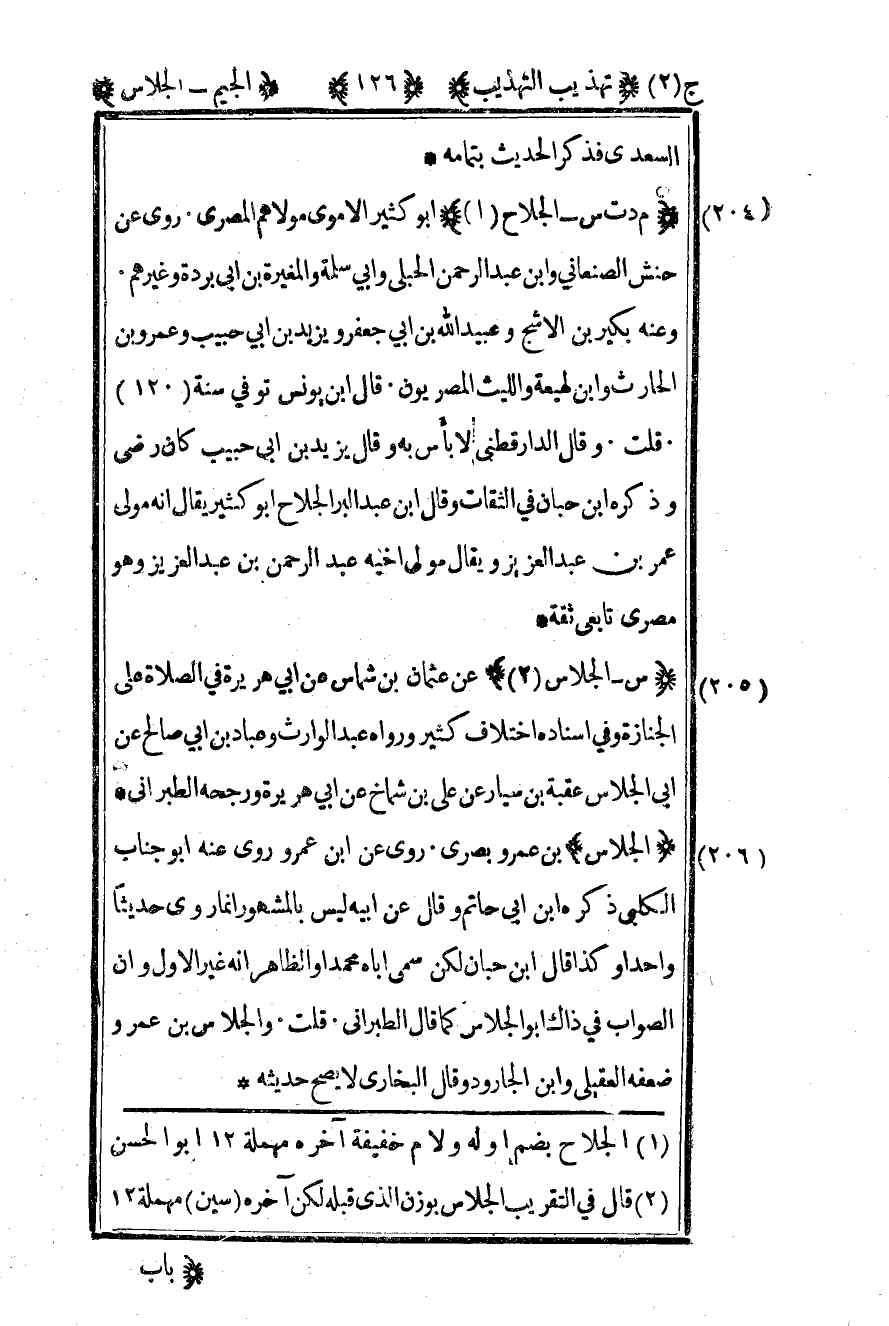 ج (٢) ﴿ تهذيب التهذيب ﴾ ﴿ ١٢٦ ﴾ ﴿ الجيم – الجلاس ﴾
السعدى فذكر الحديث بتمامه *
(٢٠٤) ﴿ م د ت س – الجلاح (١) ﴾ ابو كثير الاموى مولاهم المصرى · روى عن
حنش الصنعاني وابن عبدالرحمن الحبلى وابي سلمة والمغيرة بن ابى بردة وغيرهم ·
وعنه بكير بن الاشج وعبيدالله بن ابي جعفر ويزيد بن ابي حبيب وعمرو بن
الحارث وابن لهيعة والليث المصريون · قال ابن يونس توفي سنة (١٢٠)
· قلت · وقال الدارقطنى لا بأس به وقال يزيد بن ابي حبيب كان رضى
وذكره ابن حبان في الثقات وقال ابن عبد البر الجلاح ابو كثير يقال انه مولى
عمر بن عبدالعزيز ويقال مولى اخيه عبد الرحمن بن عبدالعزيز وهو
مصرى تابعى ثقة *
(٢٠٥) ﴿ س – الجلاس (٢) ﴾ عن عثمان بن شماس عن ابي هريرة في الصلاة على
الجنازة وفي اسناده اختلاف كثير ورواه عبدالوارث وعباد بن ابي صالح عن
ابى الجلاس عقبة بن سيار عن على بن شماخ عن ابي هريرة ورجحه الطبرانى *
(٢٠٦) ﴿ الجلاس ﴾ بن عمرو بصرى · روى عن ابن عمرو روى عنه ابو جناب
الكلبى ذكره ابن ابي حاتم وقال عن ابيه ليس بالمشهور انما روى حديثاً
واحدا وكذا قال ابن حبان لكن سمى اباه محمدا والظاهر انه غير الاول وان
الصواب في ذاك ابو الجلاس كما قال الطبرانى · قلت · والجلاس بن عمرو
ضعفه العقيلى وابن الجارود وقال البخارى لا يصح حديثه *
(١) الجلاح بضم اوله ولام خفيفة آخره مهملة ١٢ ابو الحسن
(٢) قال في التقريب الجلاس بوزن الذى قبله لكن آخره (سين) مهملة ١٢
﴿ باب